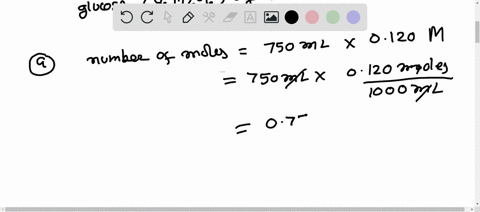 glucose
(a) number of moles = 750 mL × 0.120 M
= 750 mL × 0.120 moles / 1000 mL
= 0.7